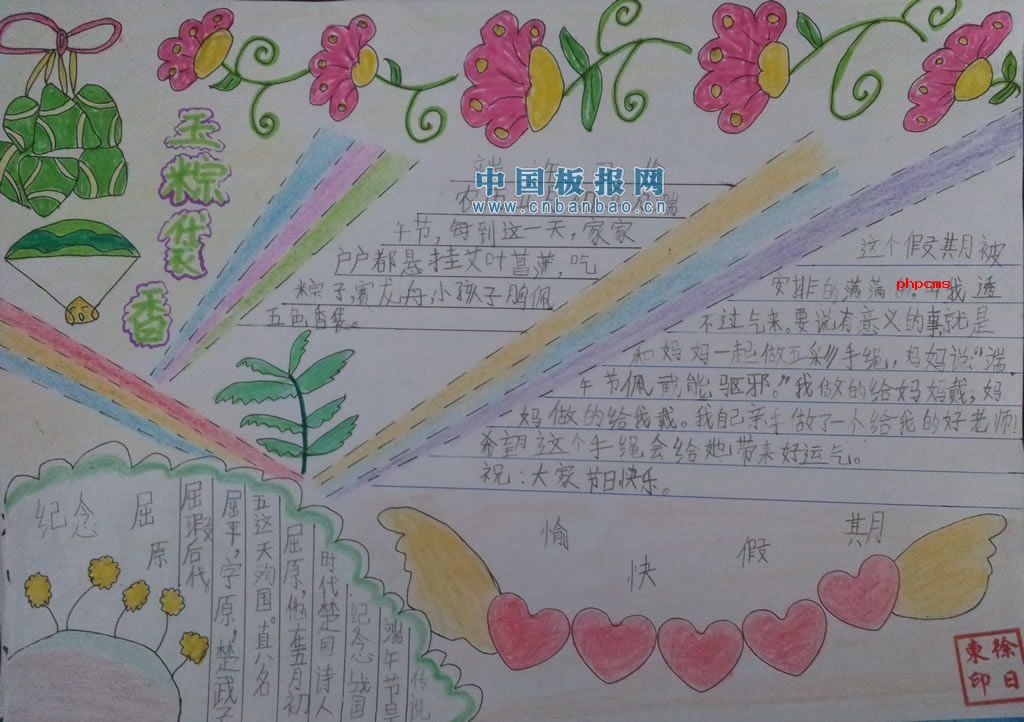 玉粽袋香
中国板报网
www.cnbanbao.cn
午节,每到这一天,家家
户户都悬挂艾叶菖蒲,吃
粽子,赛龙舟小孩子胸佩
五色香袋。
这个假期被
安排的满满
phpcms
我透
不过气来。要说有意义的事就是
和妈妈一起做五彩手绳,妈妈说:“端
午节佩戴能驱邪。”我做的给妈妈戴,妈
妈做的给我戴。我自己亲手做了一个给我的好老师!
希望这个手绳会给她带来好运气。
祝:大家节日快乐。
纪念屈原
传说
端午节是
纪念战国
时代楚国诗人
屈原,他在五月初
五这天殉国。真名
屈平,字原,楚武
屈瑕后代
愉快假期
徐日東印